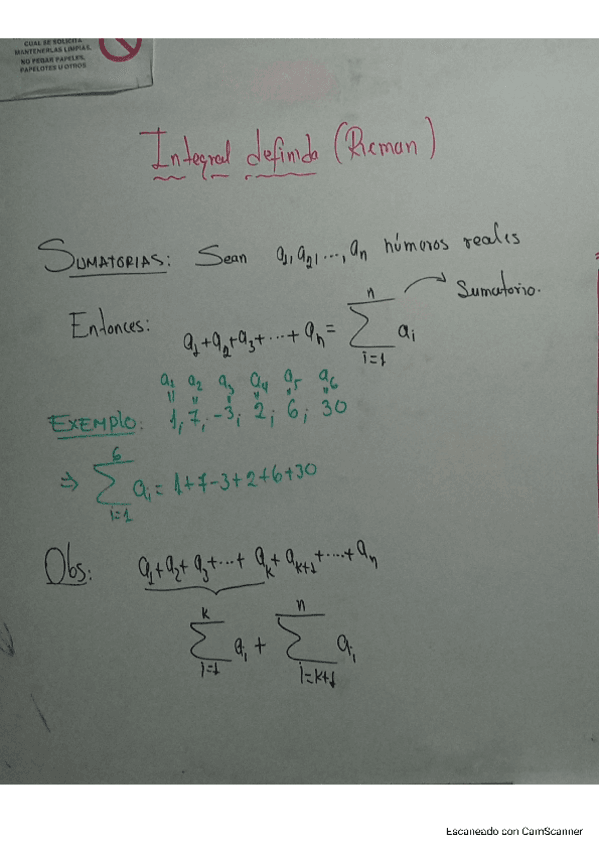 CUAL SE SOLICITA
MANTENERLAS LIMPIAS,
NO PEGAR PAPELES,
PAPELOTES U OTROS
Integral definida (Rieman)
SUMATORIAS: Sean a₁, a₂, ..., aₙ números reales
Entonces: a₁+a₂+a₃+...+aₙ = ∑ᵢ₌₁ⁿ aᵢ → Sumatorio.
a₁ a₂ a₃ a₄ a₅ a₆
EXEMPlO: 1, 7, -3; 2; 6; 30
⇒ ∑ᵢ₌₁⁶ aᵢ = 1+7-3+2+6+30
Obs: a₁+a₂+a₃+...+aₖ+aₖ₊₁+...+aₙ
∑ᵢ₌₁ᵏ aᵢ + ∑ᵢ₌ₖ₊₁ⁿ aᵢ
Escaneado con CamScanner